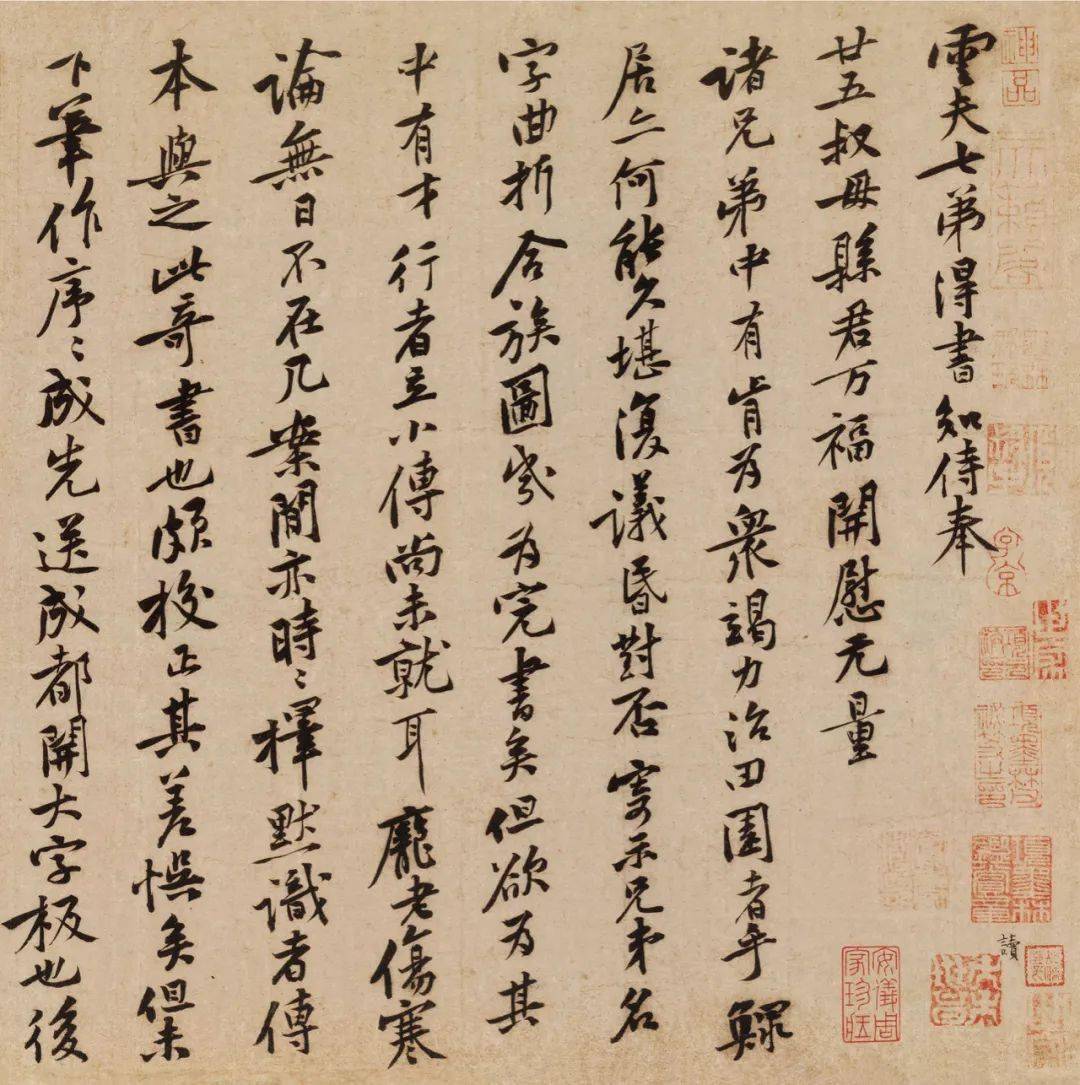 雲夫七弟得書知侍奉
廿五叔母縣君万福開慰无量
諸兄弟中有肯為衆竭力治田園者乎鰥
居亦何能久堪復議昏對否寄示兄弟名
字曲折合族圖歲為完書矣但欲為其
中有才行者立小傳尚未就耳龐老傷寒
論無日不在几案間亦時〻擇默識者傳
本與之此奇書也頗校正其差悞矣但未
下筆作序〻成先送成都開大字板也後
讀
神品
安儀周家珍藏